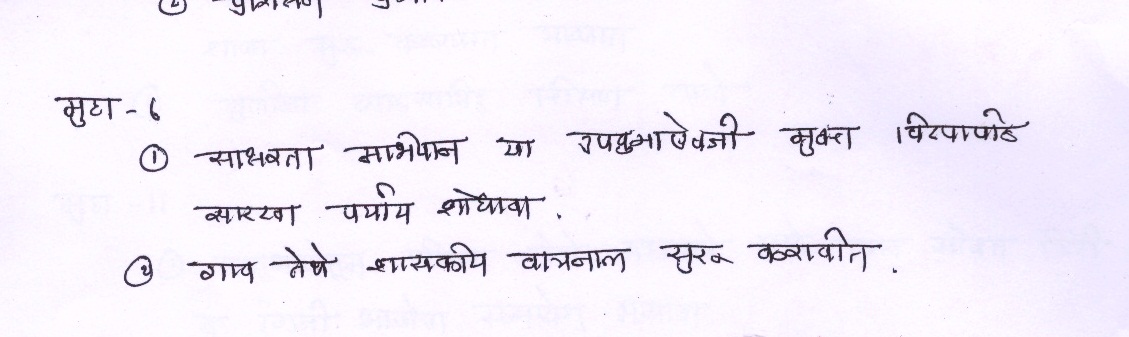 मुद्दा - ६
① साक्षरता अभियान या उपक्रमाऐवजी मुक्त विद्यापीठ
सारखा पर्याय शोधावा.
② गाव तेथे शासकीय वाचनालय सुरू करावीत.